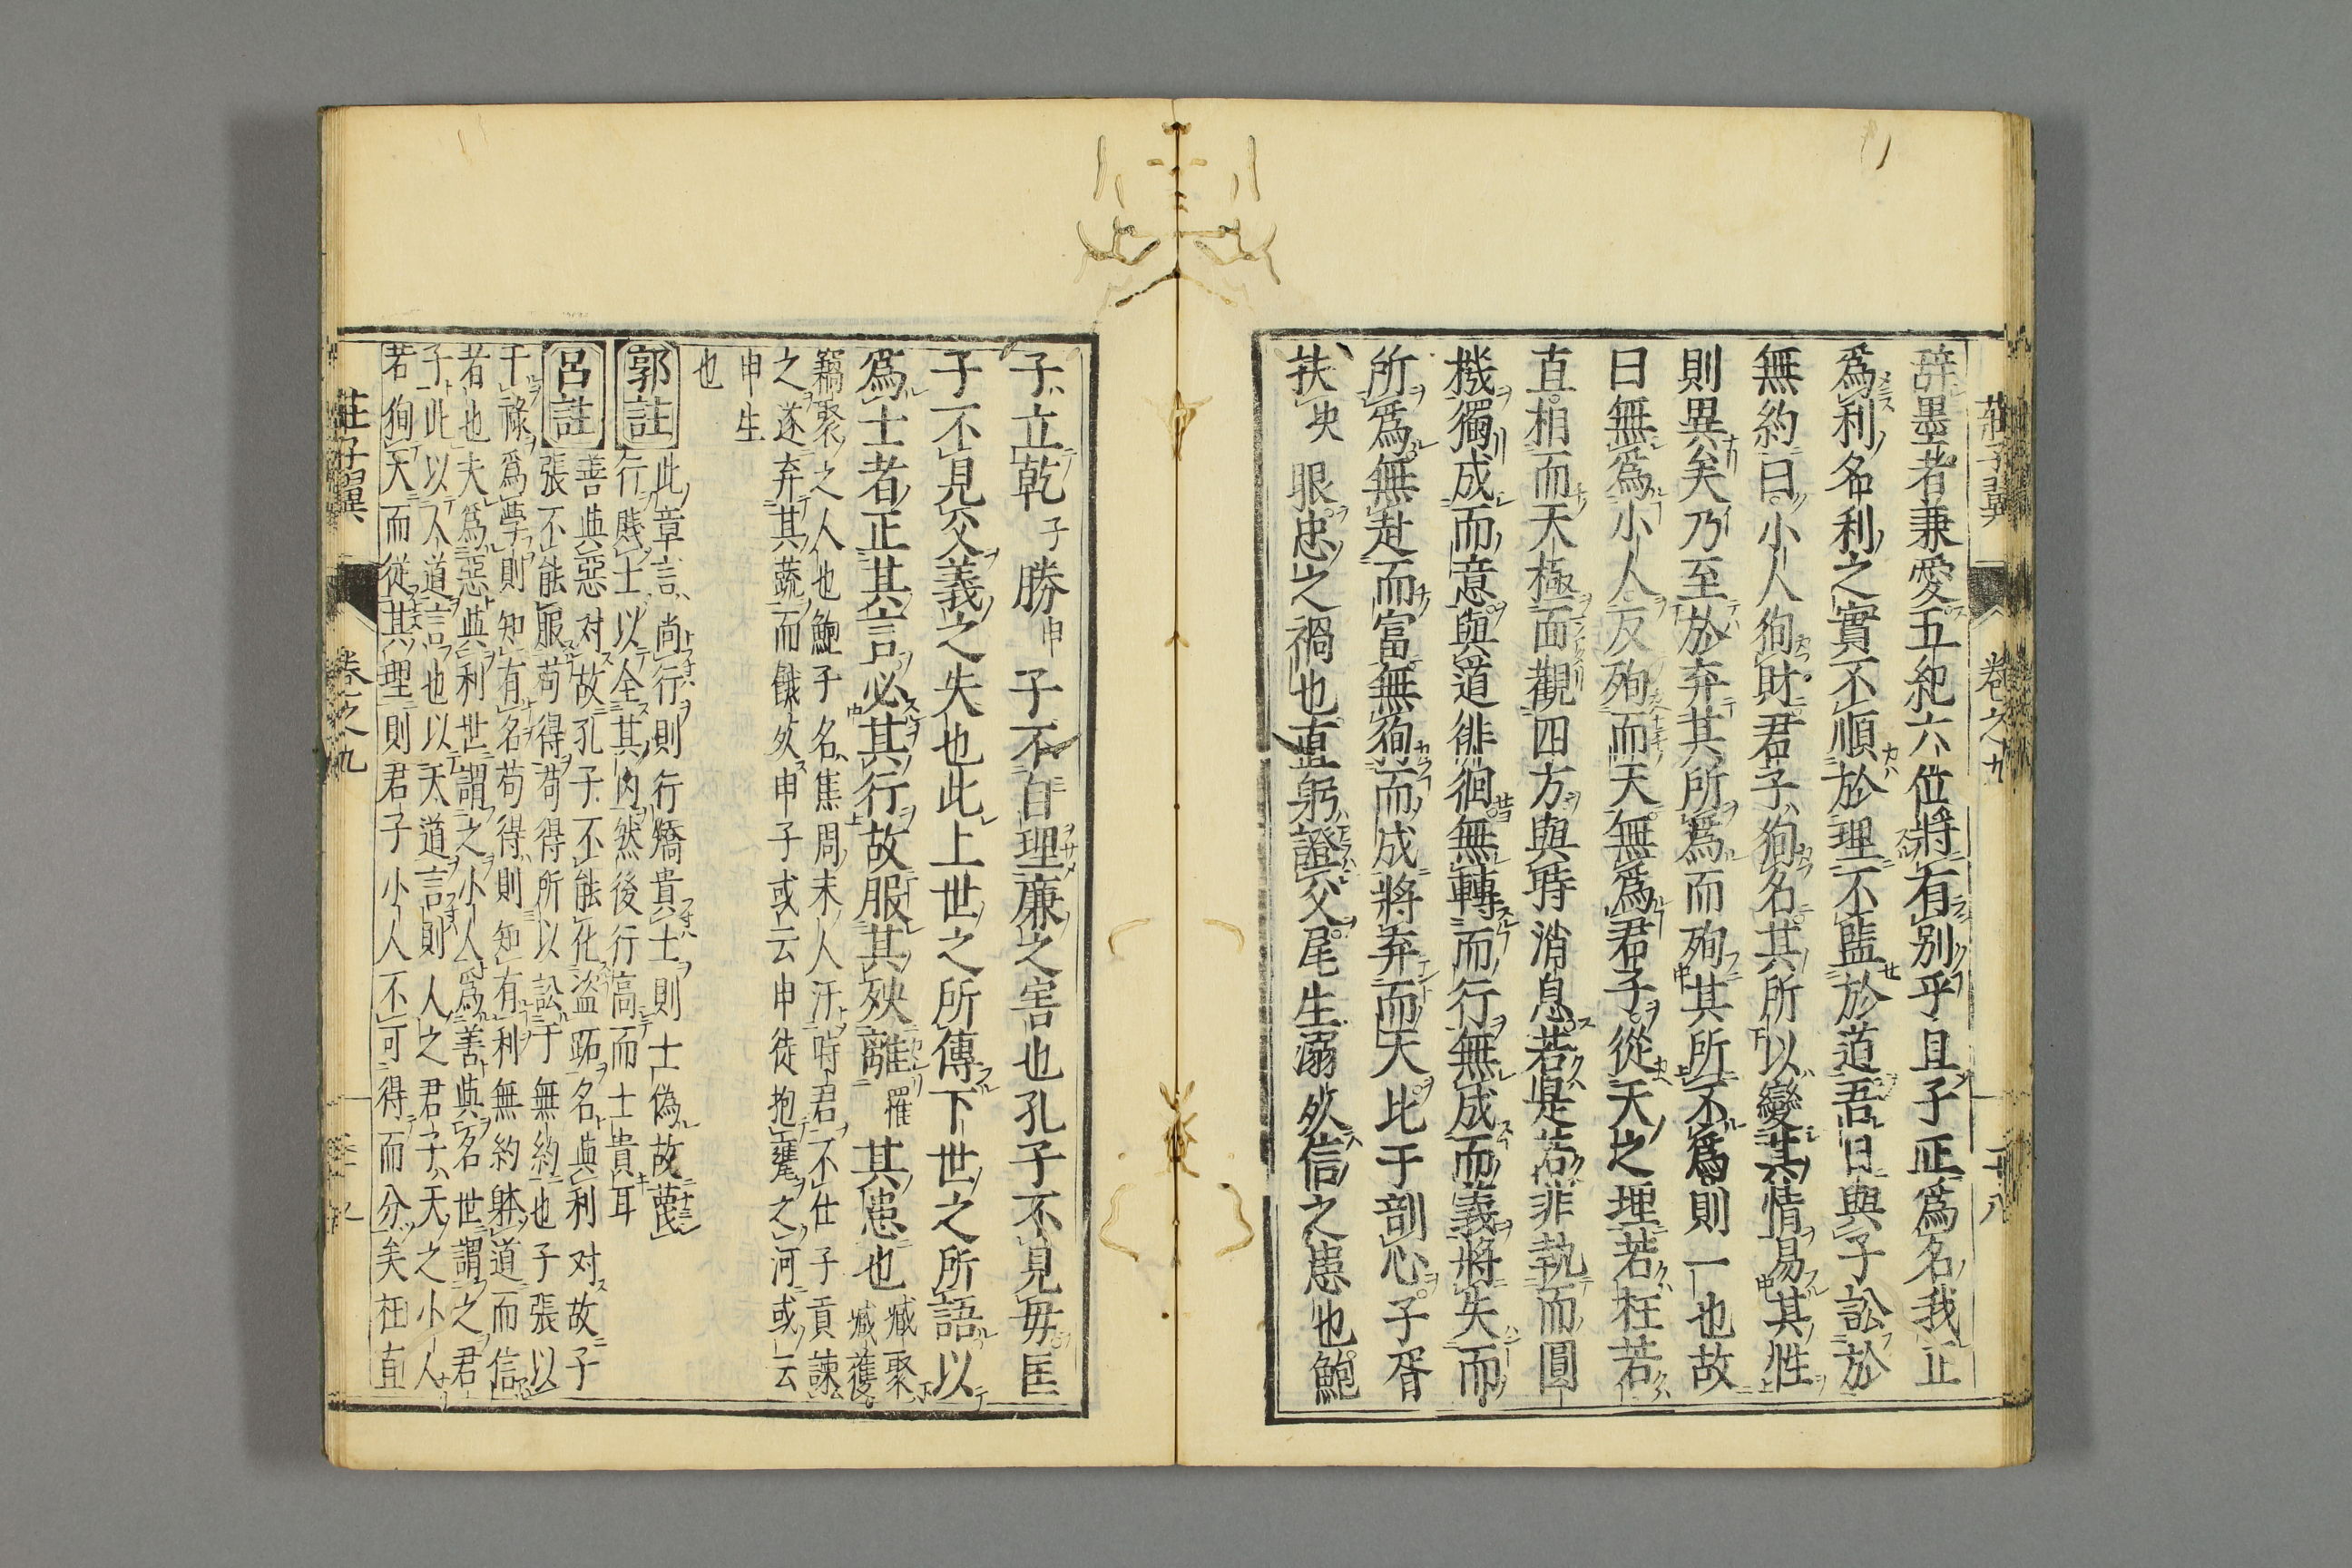 莊子翼
卷之九
十八
辭墨者兼愛五紀六位將有別乎且子正爲名我正
爲利名利之實不順於理不監於道吾日與子訟於
無約曰小人狥財君子狥名其所以變其情易其性
則異矣乃至於弃其所爲而殉其所不爲則一也故
曰無爲小人反殉而天無爲君子從天之理若枉若
直相而天極面觀四方與時消息若是若非執而圓
機獨成而意與道徘徊無轉而行無成而義將失而
所爲無赴而富無狥而成將弃而天比干剖心子胥
抉 㫼 眼忠之禍也直躬證父尾生溺死信之患也鮑
子立乾 子 勝 申 子不自理廉之害也孔子不見毋匡
子不見父義之失也此上世之所傳下世之所語以
爲士者正其言必其行故服其殃離 罹 其患也 臧聚
臧獲
竊聚之人也鮑子名焦周末人汗時君不仕子貢諫
之遂弃其蔬而餓死申子或云申徒抱甕之河或云
申生
也
郭註
此章言尚行則行矯貴士則士偽故蔑
行賤士以全其内然後行高而士貴耳
呂註
善與惡对故孔子不能化盜跖名與利对故子
張不能服苟得苟得所以訟于無約也子張以
干祿爲學則知有名苟得則知有利無約躰道而信
者也夫爲惡與利世謂之小人爲善與名世謂之君
子此以人道言也以天道言則人之君子天之小人
若狥天而從其理則君子小人不可得而分矣枉直
莊子翼
卷之九